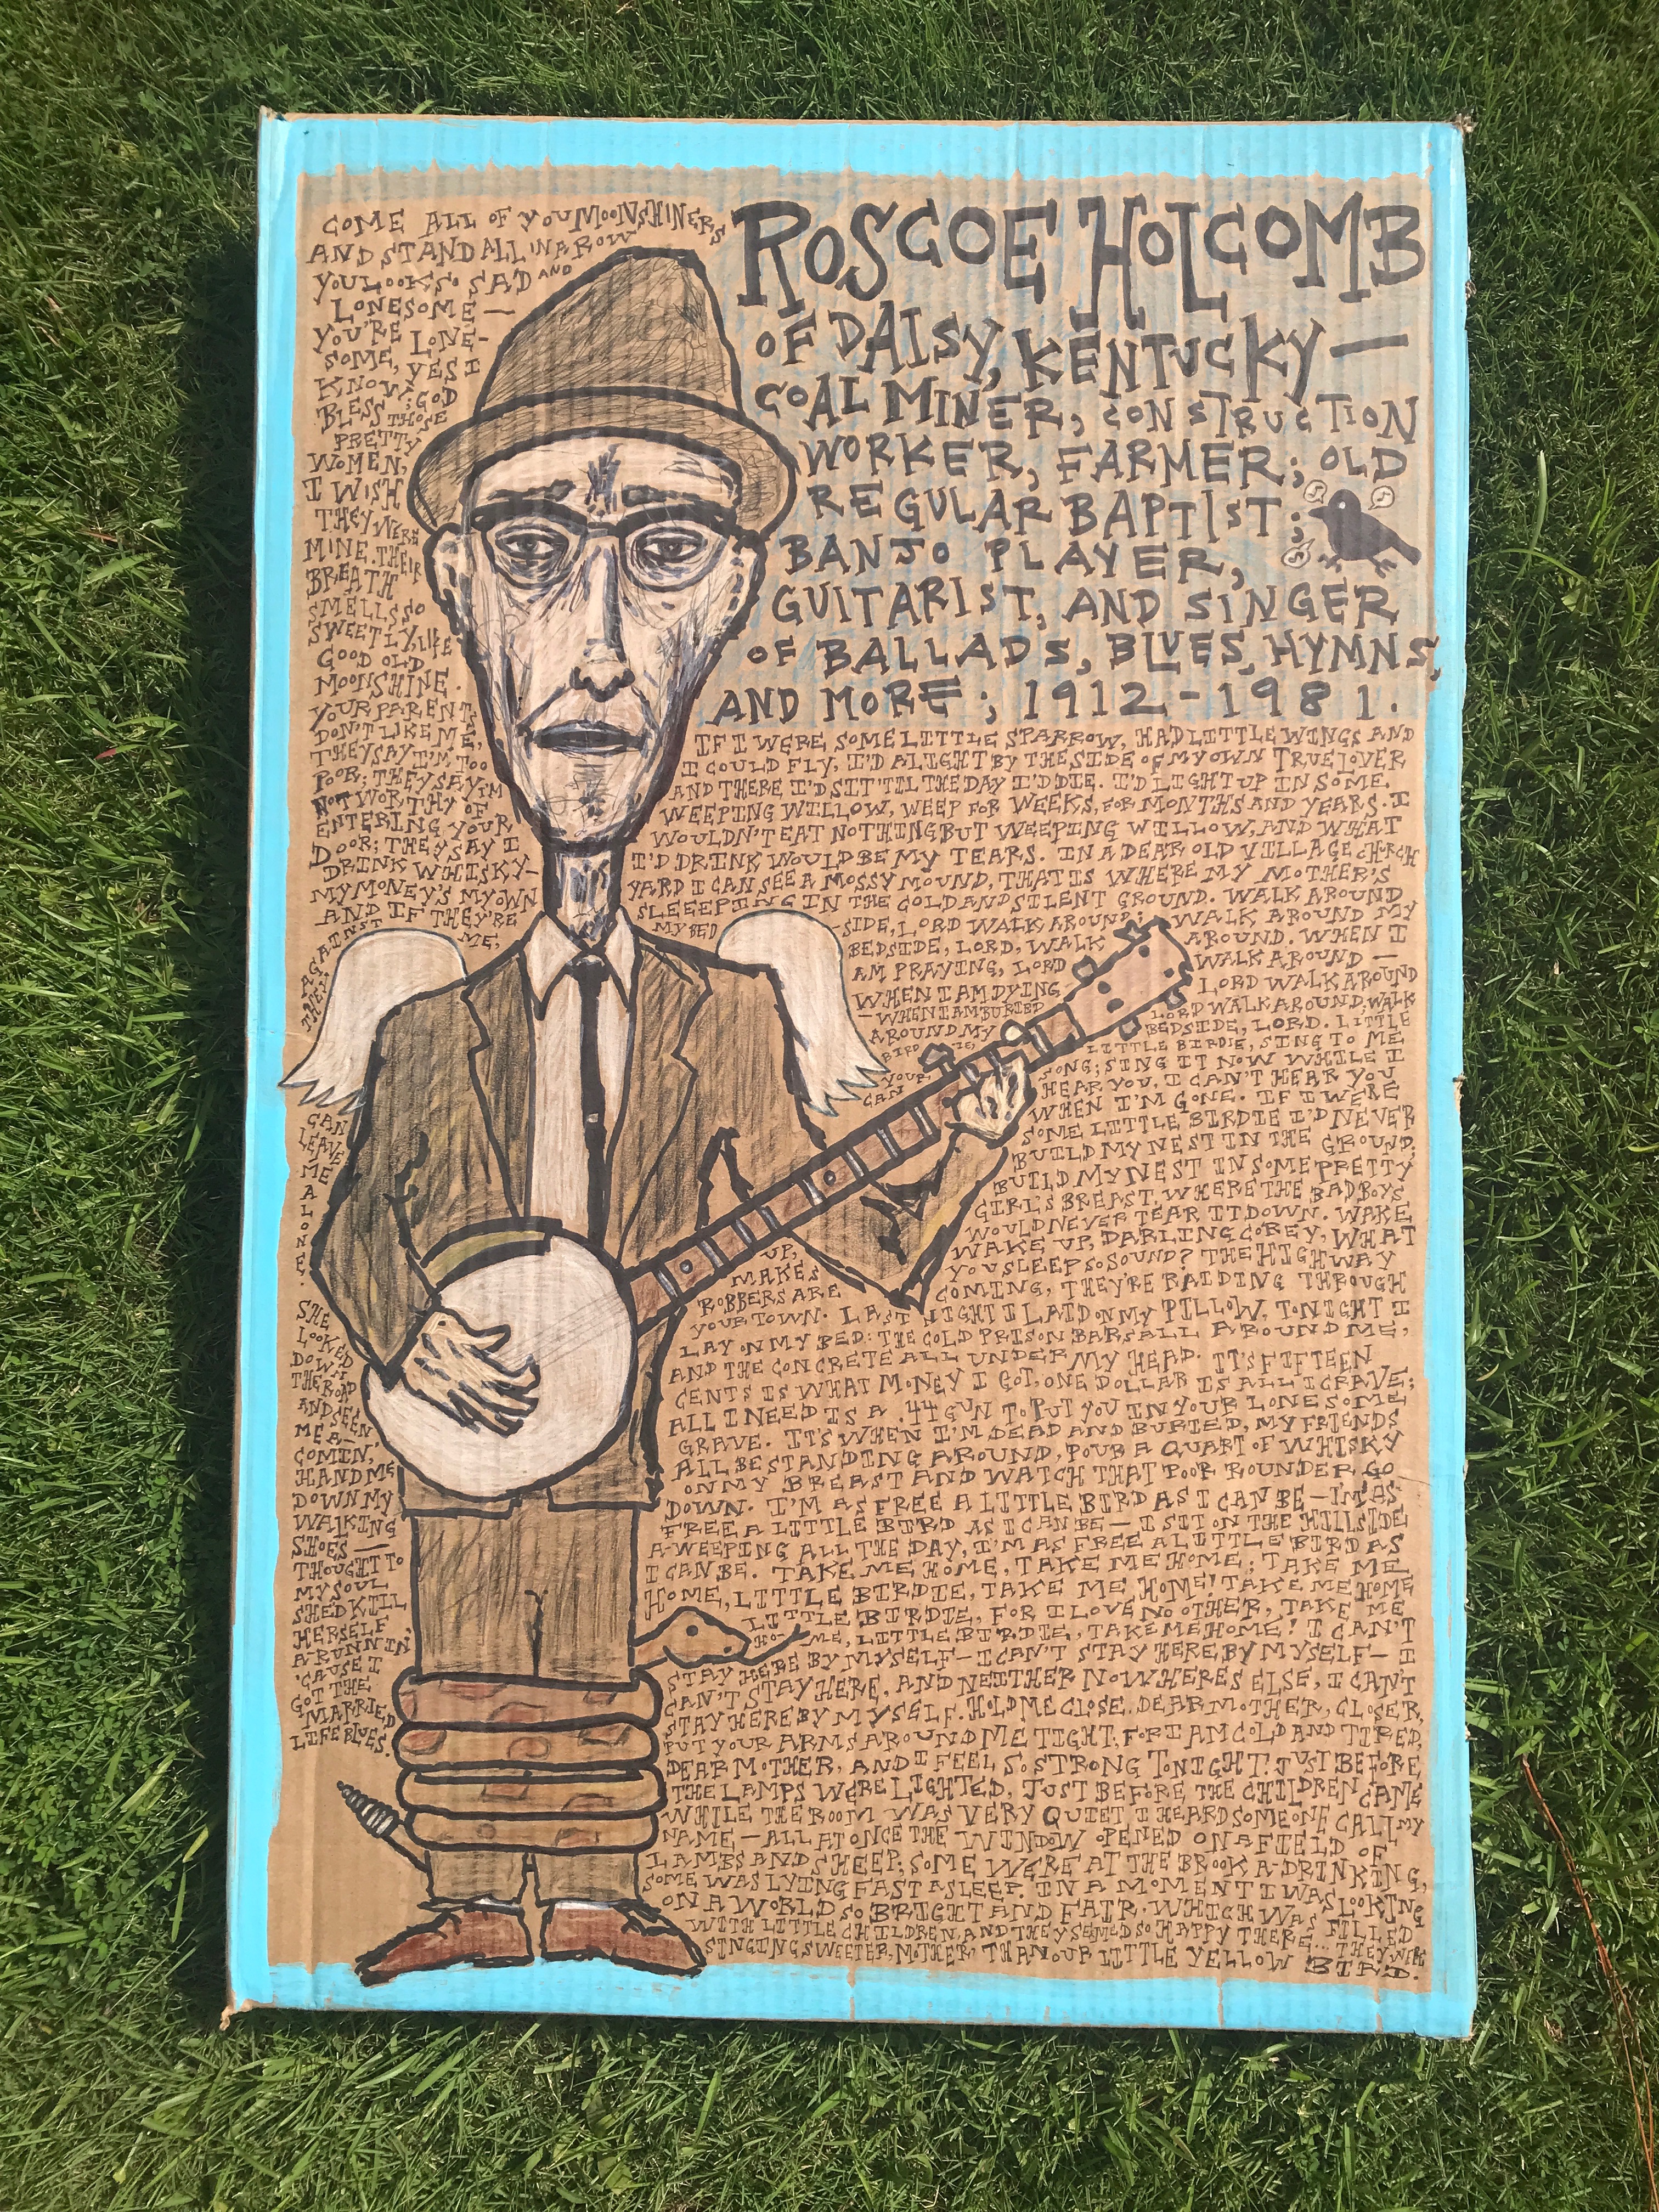 COME ALL OF YOU MOONSHINERS
AND STAND ALL IN A ROW
YOU LOOK SO SAD AND
LONESOME —
YOU'RE LONE-
SOME, YES I
KNOW; GOD
BLESS THOSE
PRETTY
WOMEN,
I WISH
THEY WERE
MINE. THEIR
BREATH
SMELLS SO
SWEETLY, LIKE
GOOD OLD
MOONSHINE.
YOUR PARENTS
DON'T LIKE ME,
THEY SAY I'M TOO
POOR; THEY SAY I'M
NOT WORTHY OF
ENTERING YOUR
DOOR; THEY SAY I
DRINK WHISKY—
MY MONEY'S MY OWN
AND IF THEY'RE
AGAINST ME,
THEY
CAN
LEAVE
ME
A
L
O
N
E.
SHE
LOOKED
DOWN
THE ROAD
AND SEEN
ME A-
COMIN',
HAND ME
DOWN MY
WALKING
SHOES —
THOUGHT TO
MY SOUL
SHED KILL
HERSELF
A-RUNNIN',
'CAUSE I
GOT THE
MARRIED
LIFE BLUES.
ROSCOE HOLCOMB
OF DAISY, KENTUCKY —
COAL MINER, CONSTRUCTION
WORKER, FARMER; OLD
REGULAR BAPTIST;
BANJO PLAYER,
GUITARIST, AND SINGER
OF BALLADS, BLUES, HYMNS,
AND MORE; 1912-1981.
IF I WERE SOME LITTLE SPARROW, HAD LITTLE WINGS AND
I COULD FLY, I'D ALIGHT BY THE SIDE OF MY OWN TRUE LOVER
AND THERE I'D SIT 'TIL THE DAY I'D DIE. I'D LIGHT UP IN SOME
WEEPING WILLOW, WEEP FOR WEEKS, FOR MONTHS AND YEARS. I
WOULDN'T EAT NOTHING BUT WEEPING WILLOW, AND WHAT
I'D DRINK WOULD BE MY TEARS. IN A DEAR OLD VILLAGE CHRCH
YARD I CAN SEE A MOSSY MOUND, THAT IS WHERE MY MOTHER'S
SLEEEPING IN THE COLD AND SILENT GROUND. WALK AROUND
MY BED -SIDE, LORD WALK AROUND; WALK AROUND MY
BEDSIDE, LORD, WALK AROUND. WHEN I
AM PRAYING, LORD WALK AROUND —
WHEN I AM DYING LORD WALK AROUND
—WHEN I AM BURIED LORD WALK AROUND, WALK
AROUND MY BEDSIDE, LORD. LITTLE
BIRDIE, LITTLE BIRDIE, SING TO ME
YOUR SONG; SING IT NOW WHILE I
CAN HEAR YOU, I CAN'T HEAR YOU
WHEN I'M GONE. IF I WERE
SOME LITTLE BIRDIE I'D NEVER
BUILD MY NEST IN THE GROUND;
BUILD MY NEST IN SOME PRETTY
GIRL'S BREAST, WHERE THE BAD BOYS
WOULD NEVER TEAR IT DOWN. WAKE
UP, WAKE UP, DARLING COREY, WHAT
MAKES YOU SLEEP SO SOUND? THE HIGHWAY
ROBBERS ARE COMING, THEY'RE RAIDING THROUGH
YOUR TOWN. LAST NIGHT I LAID ON MY PILLOW, TONIGHT I
LAY ON MY BED: THE COLD PRISON BARS ALL AROUND ME,
AND THE CONCRETE ALL UNDER MY HEAD. IT'S FIFTEEN
CENTS IS WHAT MONEY I GOT, ONE DOLLAR IS ALL I CRAVE;
ALL I NEED IS A .44 GUN TO PUT YOU IN YOUR LONESOME
GRAVE. IT'S WHEN I'M DEAD AND BURIED, MY FRIENDS
ALL BE STANDING AROUND, POUR A QUART OF WHISKY
ON MY BREAST AND WATCH THAT POOR ROUNDER GO
DOWN. I'M AS FREE A LITTLE BIRD AS I CAN BE — I'M AS
FREE A LITTLE BIRD AS I CAN BE — I SIT ON THE HILLSIDE
A-WEEPING ALL THE DAY, I'M AS FREE A LITTLE BIRD AS
I CAN BE. TAKE ME HOME, TAKE ME HOME; TAKE ME
HOME, LITTLE BIRDIE, TAKE ME HOME! TAKE ME HOME
LITTLE BIRDIE, FOR I LOVE NO OTHER, TAKE ME
HO- ME, LITTLE BIRDIE, TAKE ME HOME! I CAN'T
STAY HERE BY MYSELF — I CAN'T STAY HERE BY MYSELF — I
CAN'T STAY HERE, AND NEITHER NOWHERES ELSE, I CAN'T
STAY HERE BY MYSELF. HOLD ME CLOSE, DEAR MOTHER, CLOSER,
PUT YOUR ARMS AROUND ME TIGHT, FOR I AM COLD AND TIRED,
DEAR MOTHER, AND I FEEL SO STRONG TONIGHT! JUST BEFORE
THE LAMPS WERE LIGHTED, JUST BEFORE THE CHILDREN CAME
WHILE THE ROOM WAS VERY QUIET I HEARD SOMEONE CALL MY
NAME — ALL AT ONCE THE WINDOW OPENED ON A FIELD OF
LAMBS AND SHEEP; SOME WERE AT THE BROOK A-DRINKING,
SOME WAS LYING FAST ASLEEP. IN A MOMENT I WAS LOOKING
ON A WORLD SO BRIGHT AND FAIR, WHICH WAS FILLED
WITH LITTLE CHILDREN, AND THEY SEEMED SO HAPPY THERE... THEY WERE
SINGING SWEETER, MOTHER, THAN OUR LITTLE YELLOW BIRD.